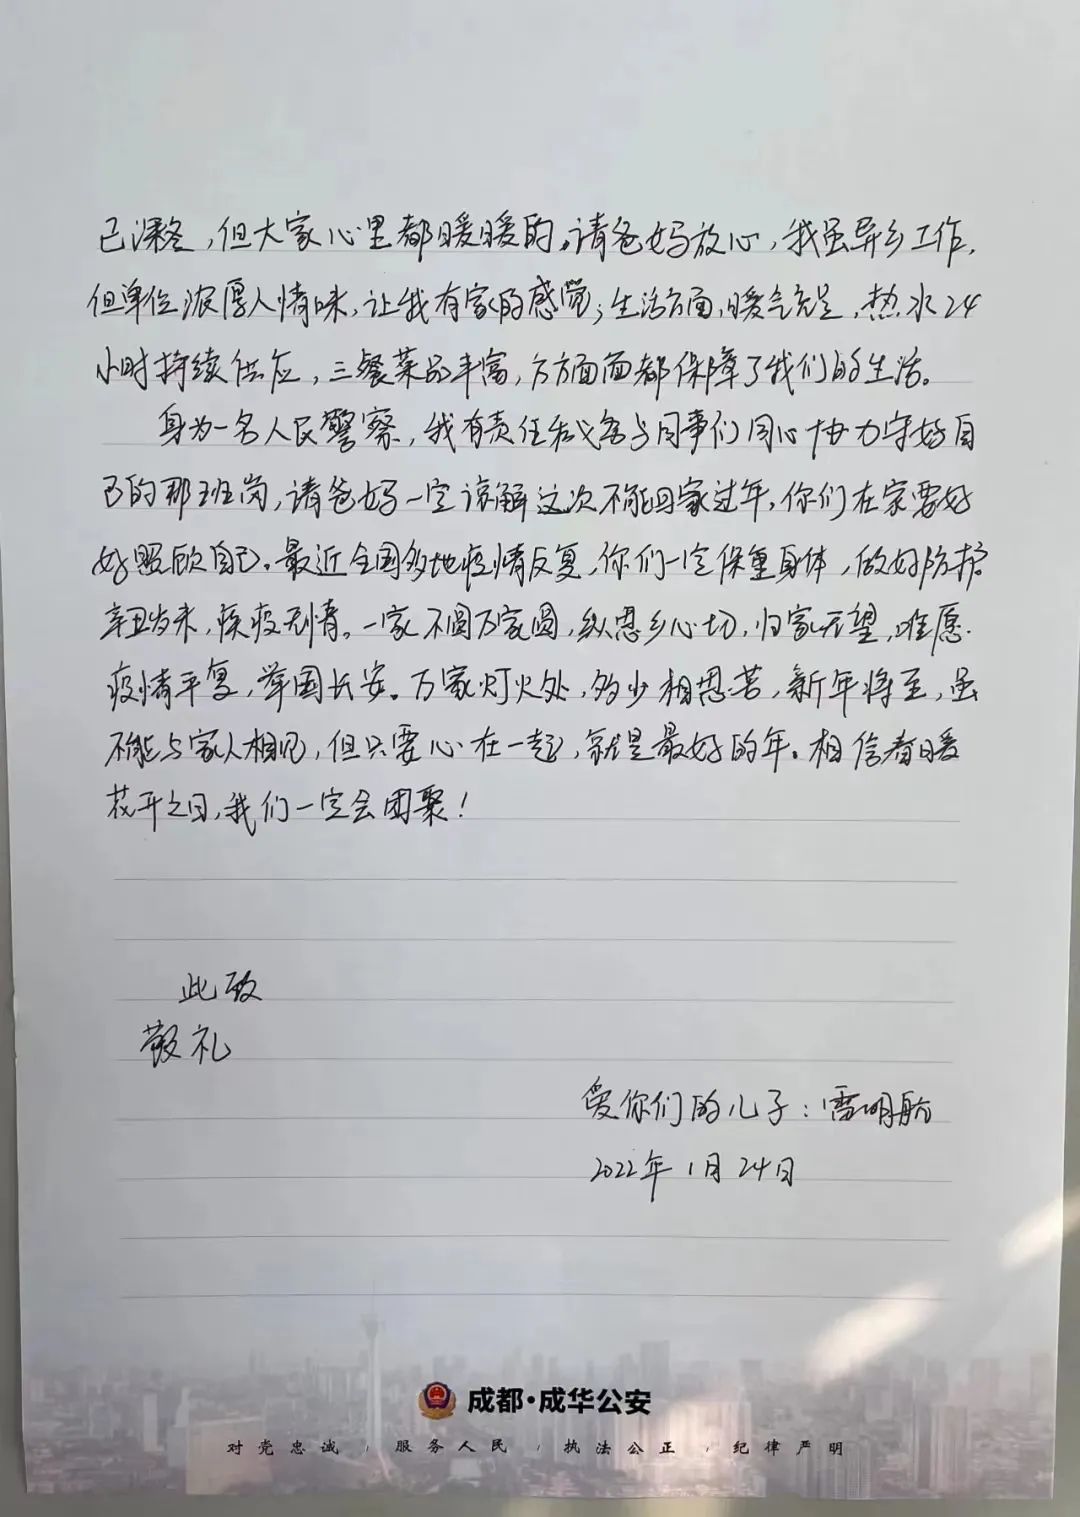 已深冬，但大家心里都暖暖的。请爸妈放心，我虽异乡工作，
但单位浓厚人情味，让我有家的感觉；生活方面，暖气充足，热水24
小时持续供应，三餐菜品丰富，方方面面都保障了我们的生活。
身为一名人民警察，我有责任和义务与同事们同心协力守好自
己的那班岗，请爸妈一定谅解这次不能回家过年，你们在家要好
好照顾自己。最近全国多地疫情反复，你们一定保重身体，做好防护
辛丑岁末，疾疫无情。一家不圆万家圆，纵思乡心切，归家无望，唯愿
疫情平复，举国长安。万家灯火处，多少相思苦，新年将至，虽
不能与家人相见，但只要心在一起，就是最好的年。相信春暖
花开之日，我们一定会团聚！
此致
敬礼
爱你们的儿子：雷明船
2022年1月24日
成都·成华公安
对党忠诚 / 服务人民 / 执法公正 / 纪律严明